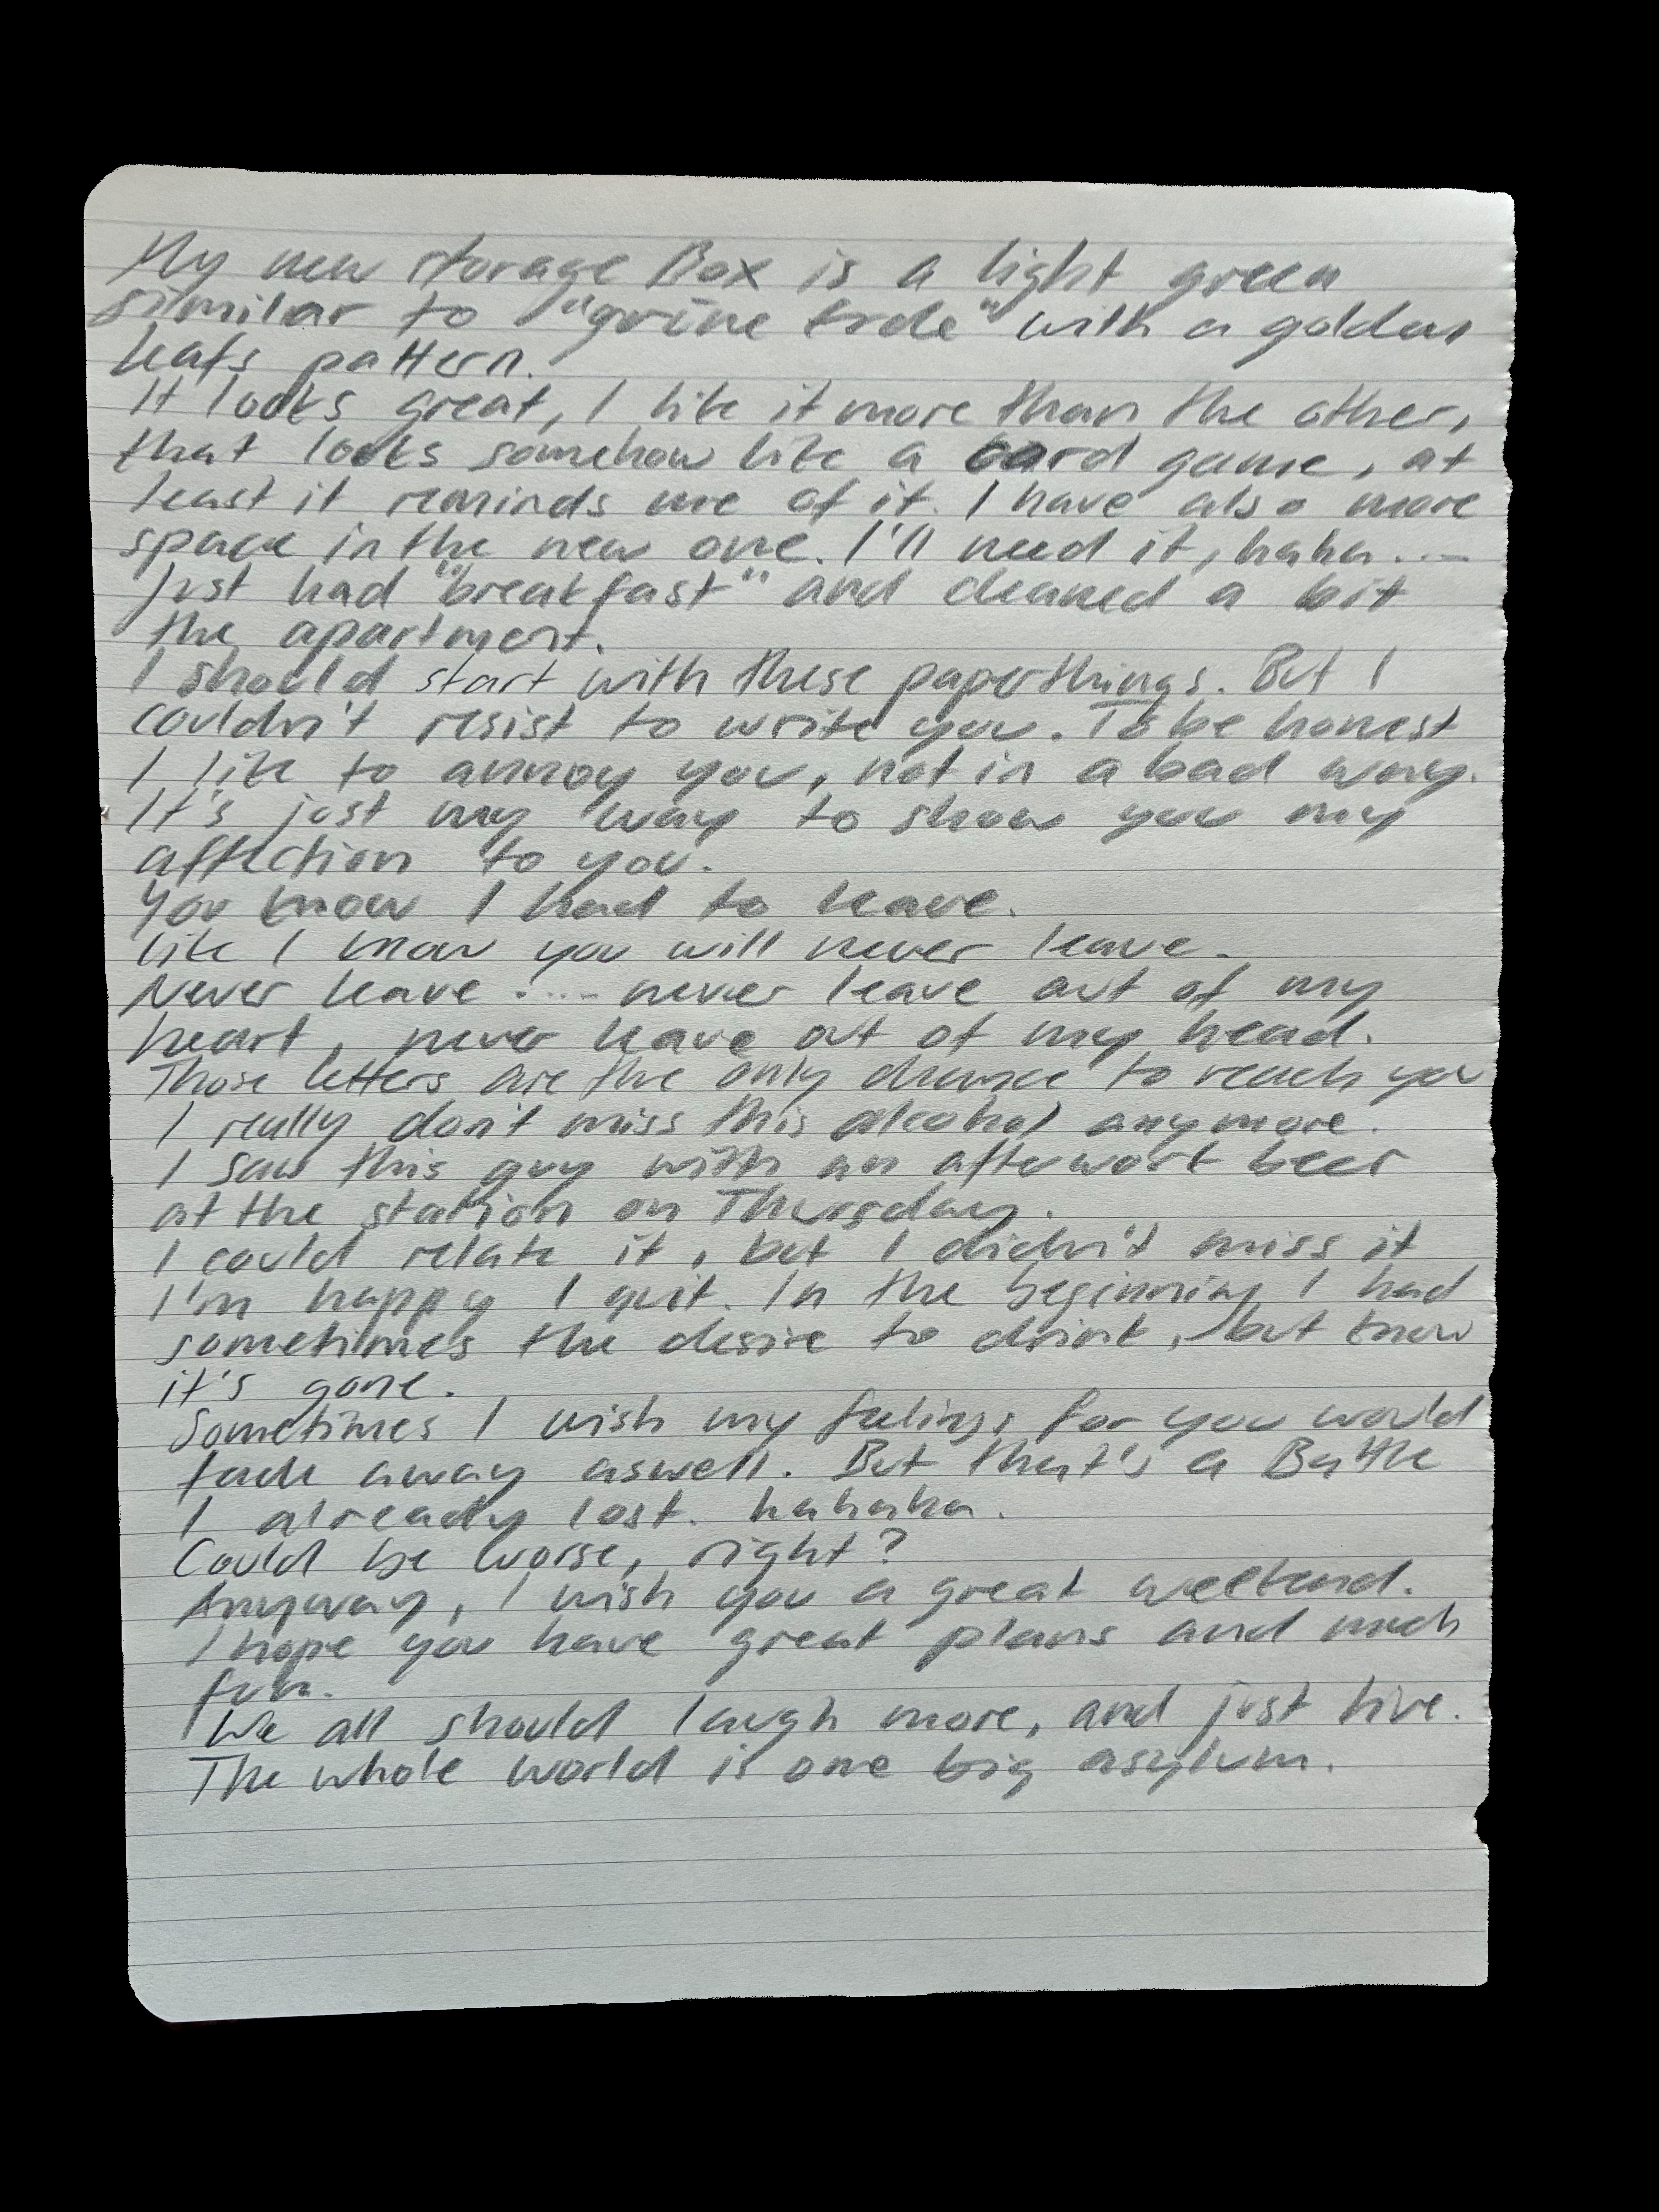 My new storage Box is a light green
similar to "grüne Erde" with a golden
leafs pattern.
It looks great, I like it more than the other,
that looks somehow like a card game, at
least it reminds me of it. I have also more
space in the new one. I'll need it, haha....
Just had "breakfast" and cleaned a bit
the apartment.
I should start with these paperthings. But I
couldn't resist to write you. To be honest
I like to annoy you, not in a bad way.
It's just my way to show you my
affection to you.
You know I had to leave.
like I know you will never leave.
Never leave .... never leave out of my
heart, never leave out of my head.
Those letters are the only chance to reach you
I really don't miss this alcohol anymore.
I saw this guy with an afterwork beer
at the station on Thursday.
I could relate it, but I didn't miss it
I'm happy I quit. In the beginning I had
sometimes the desire to drink, but know
it's gone.
Sometimes I wish my feelings for you would
fade away aswell. But that's a Battle
I already lost. hahaha.
Could be worse, right?
Anyway, I wish you a great weekend.
I hope you have great plans and much
fun.
We all should laugh more, and just live.
The whole world is one big asylum.